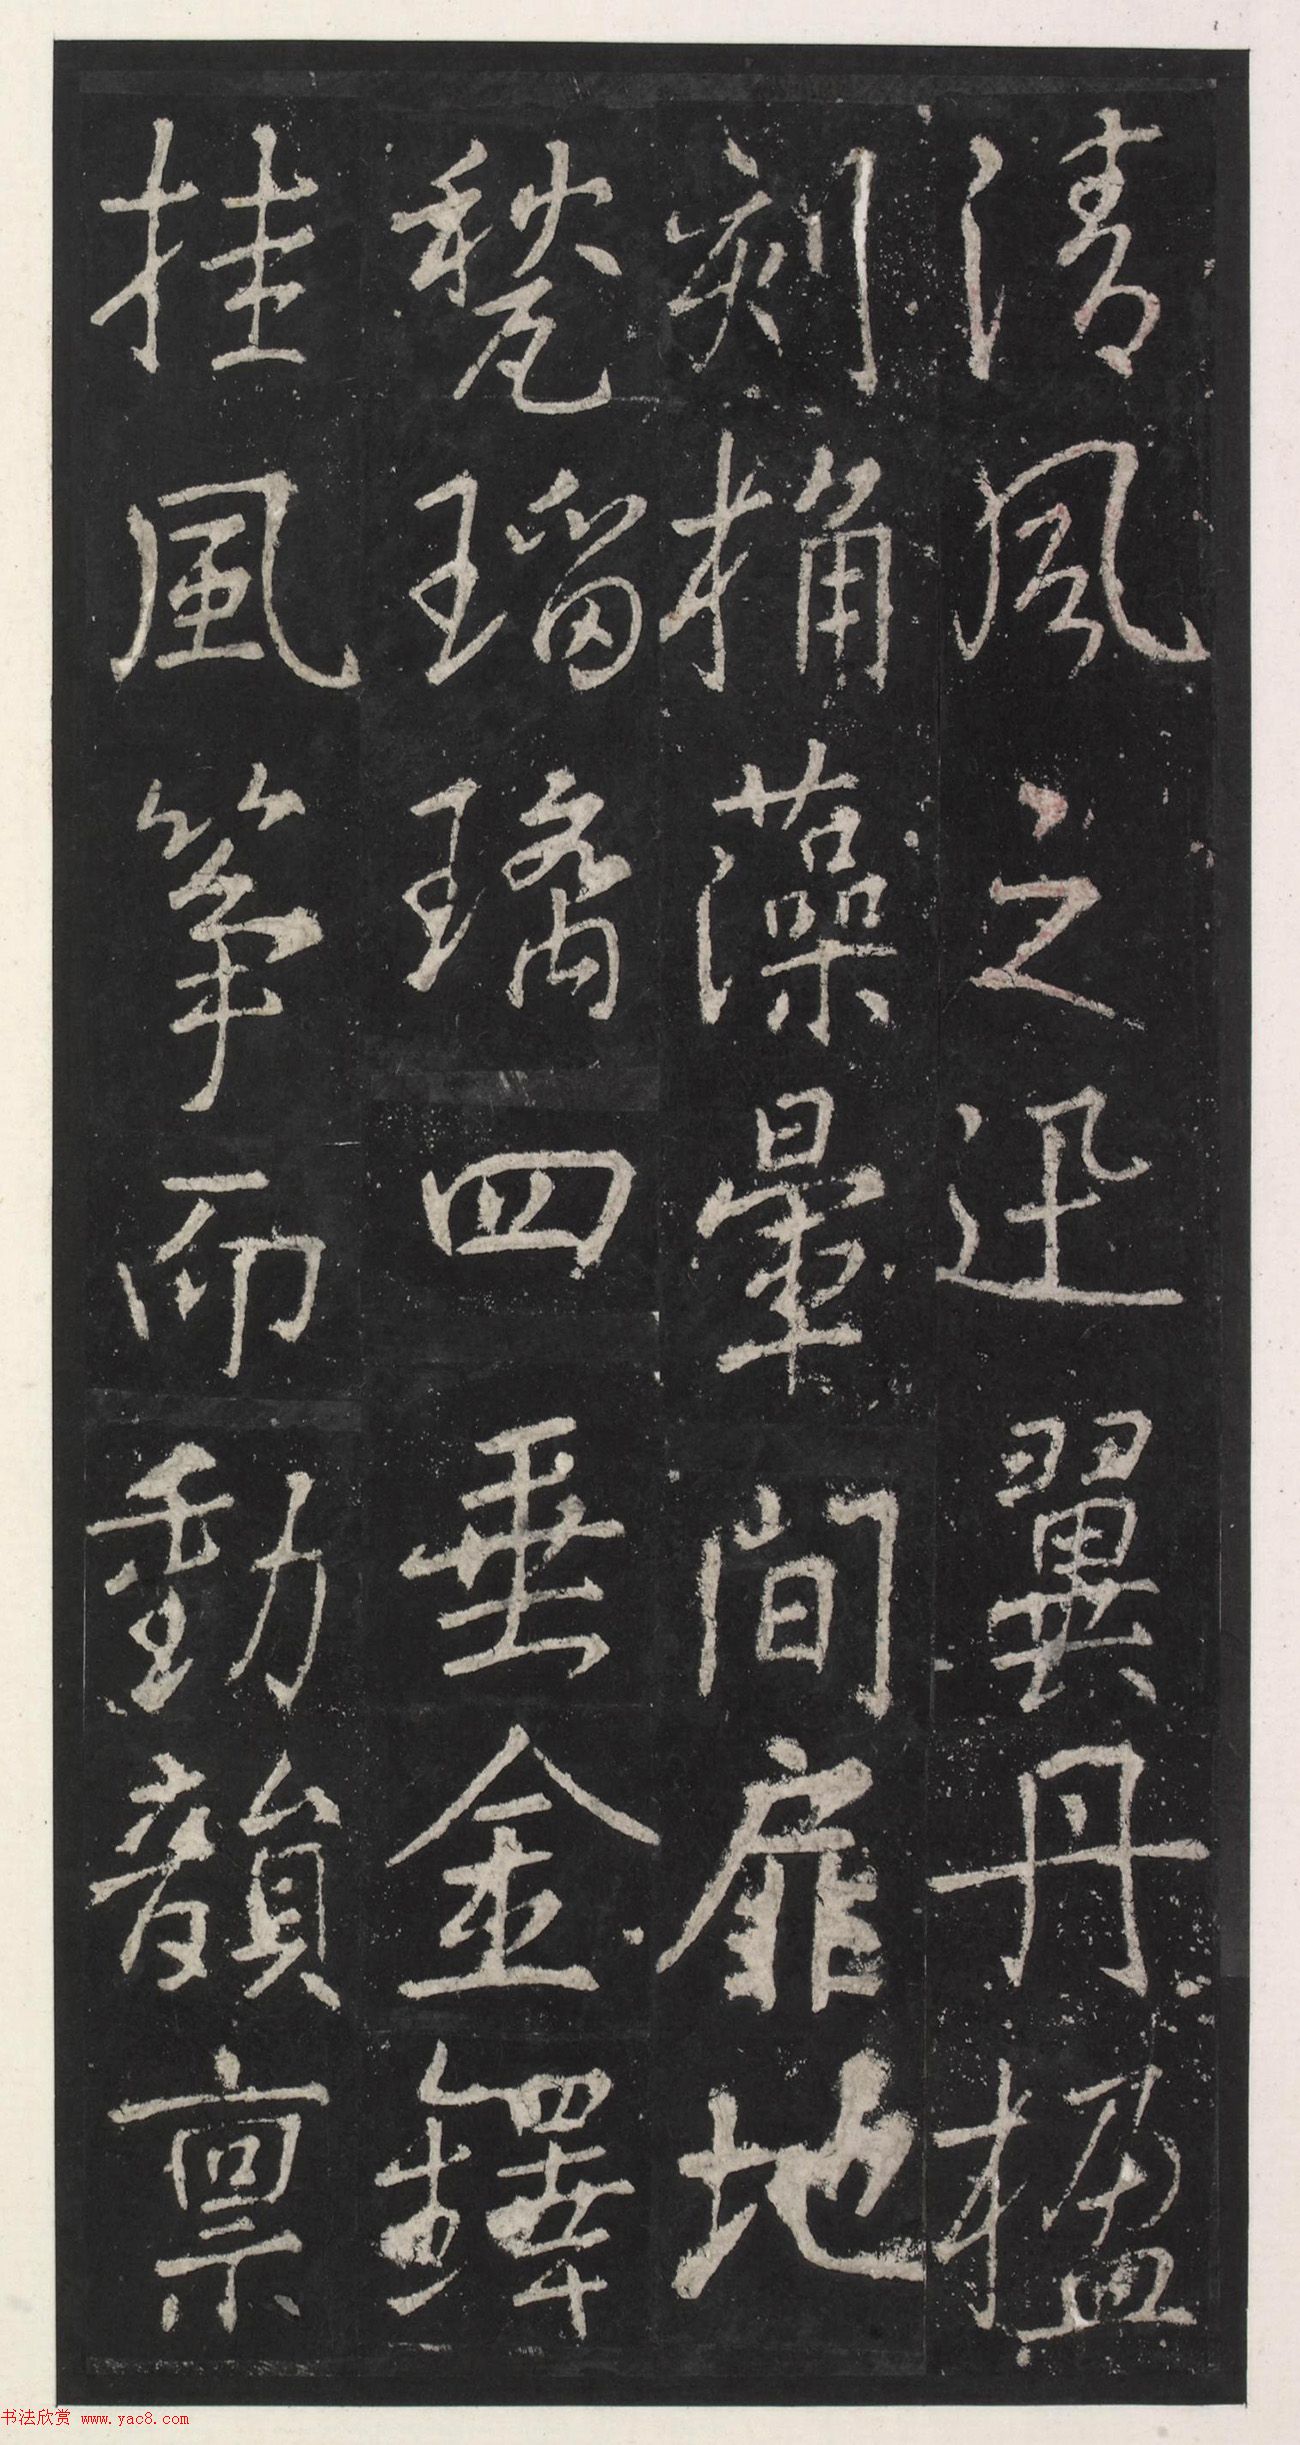 清風之迅翼丹楹
刻桷藻暈間扉地
甃瑠璃四垂金鐸
挂風箏而動韻禀
书法欣赏 www.yac8.com